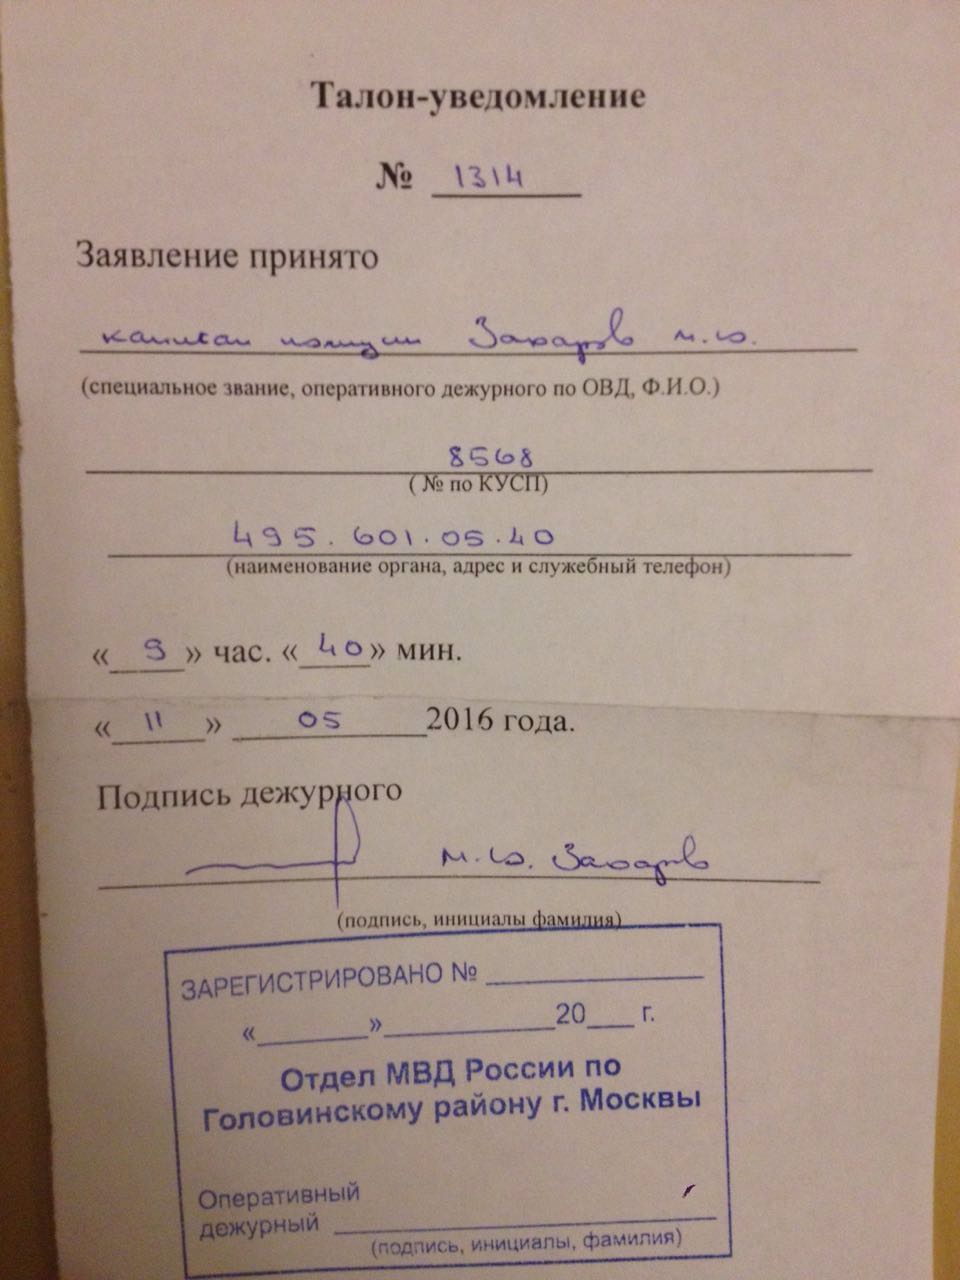 Талон-уведомление
№ 1314
Заявление принято
капитан полиции Захаров М.Ю.
(специальное звание, оперативного дежурного по ОВД, Ф.И.О.)
8568
( № по КУСП)
495.601.05.40
(наименование органа, адрес и служебный телефон)
« 9 » час. « 40 » мин.
« 11 » 05 2016 года.
Подпись дежурного
М.Ю. Захаров
(подпись, инициалы фамилия)
ЗАРЕГИСТРИРОВАНО №
« » 20 г.
Отдел МВД России по
Головинскому району г. Москвы
Оперативный
дежурный
(подпись, инициалы, фамилия)